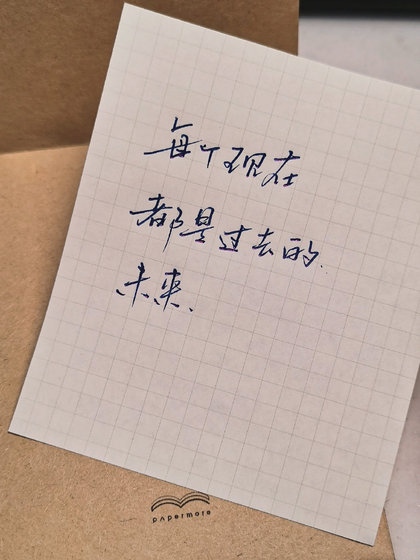 每个现在
都是过去的
未来.
papermore